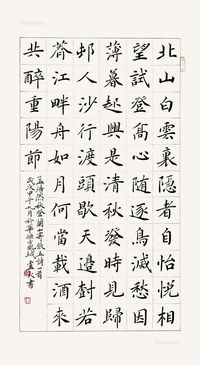 北山白雲裏隱者自怡悅相
望試登高心隨逐鳥滅愁因
薄暮起興是清秋發時見歸
邨人沙行渡頭歇天邊樹若
薺江畔舟如月何當載酒來
共醉重陽節
孟浩然秋登蘭山寄張五詩一首
歲次甲午年九月於書